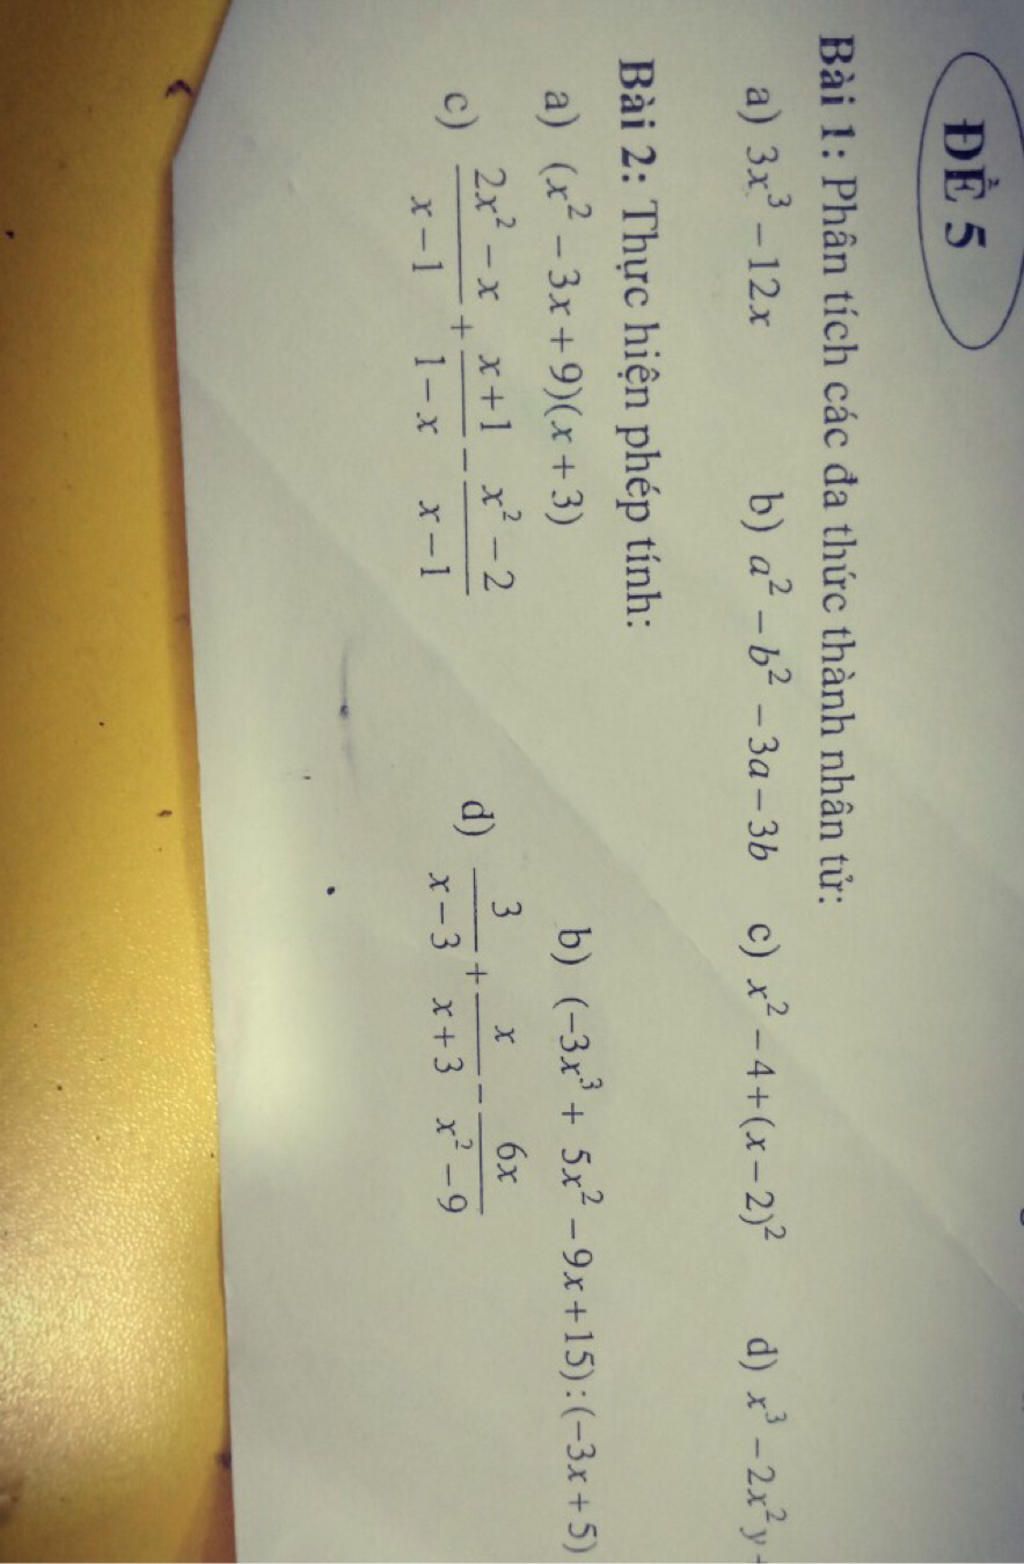 ĐỀ 5
Bài 1: Phân tích các đa thức thành nhân tử:
a) 3x³ − 12x b) a² − b² − 3a − 3b c) x² − 4 + (x − 2)² d) x³ − 2x²y
Bài 2: Thực hiện phép tính:
a) (x² − 3x + 9)(x + 3) b) (−3x³ + 5x² − 9x + 15) : (−3x + 5)
c) (2x² − x)/(x − 1) + (x + 1)/(1 − x) − (x² − 2)/(x − 1) d) 3/(x − 3) + x/(x + 3) − 6x/(x² − 9)